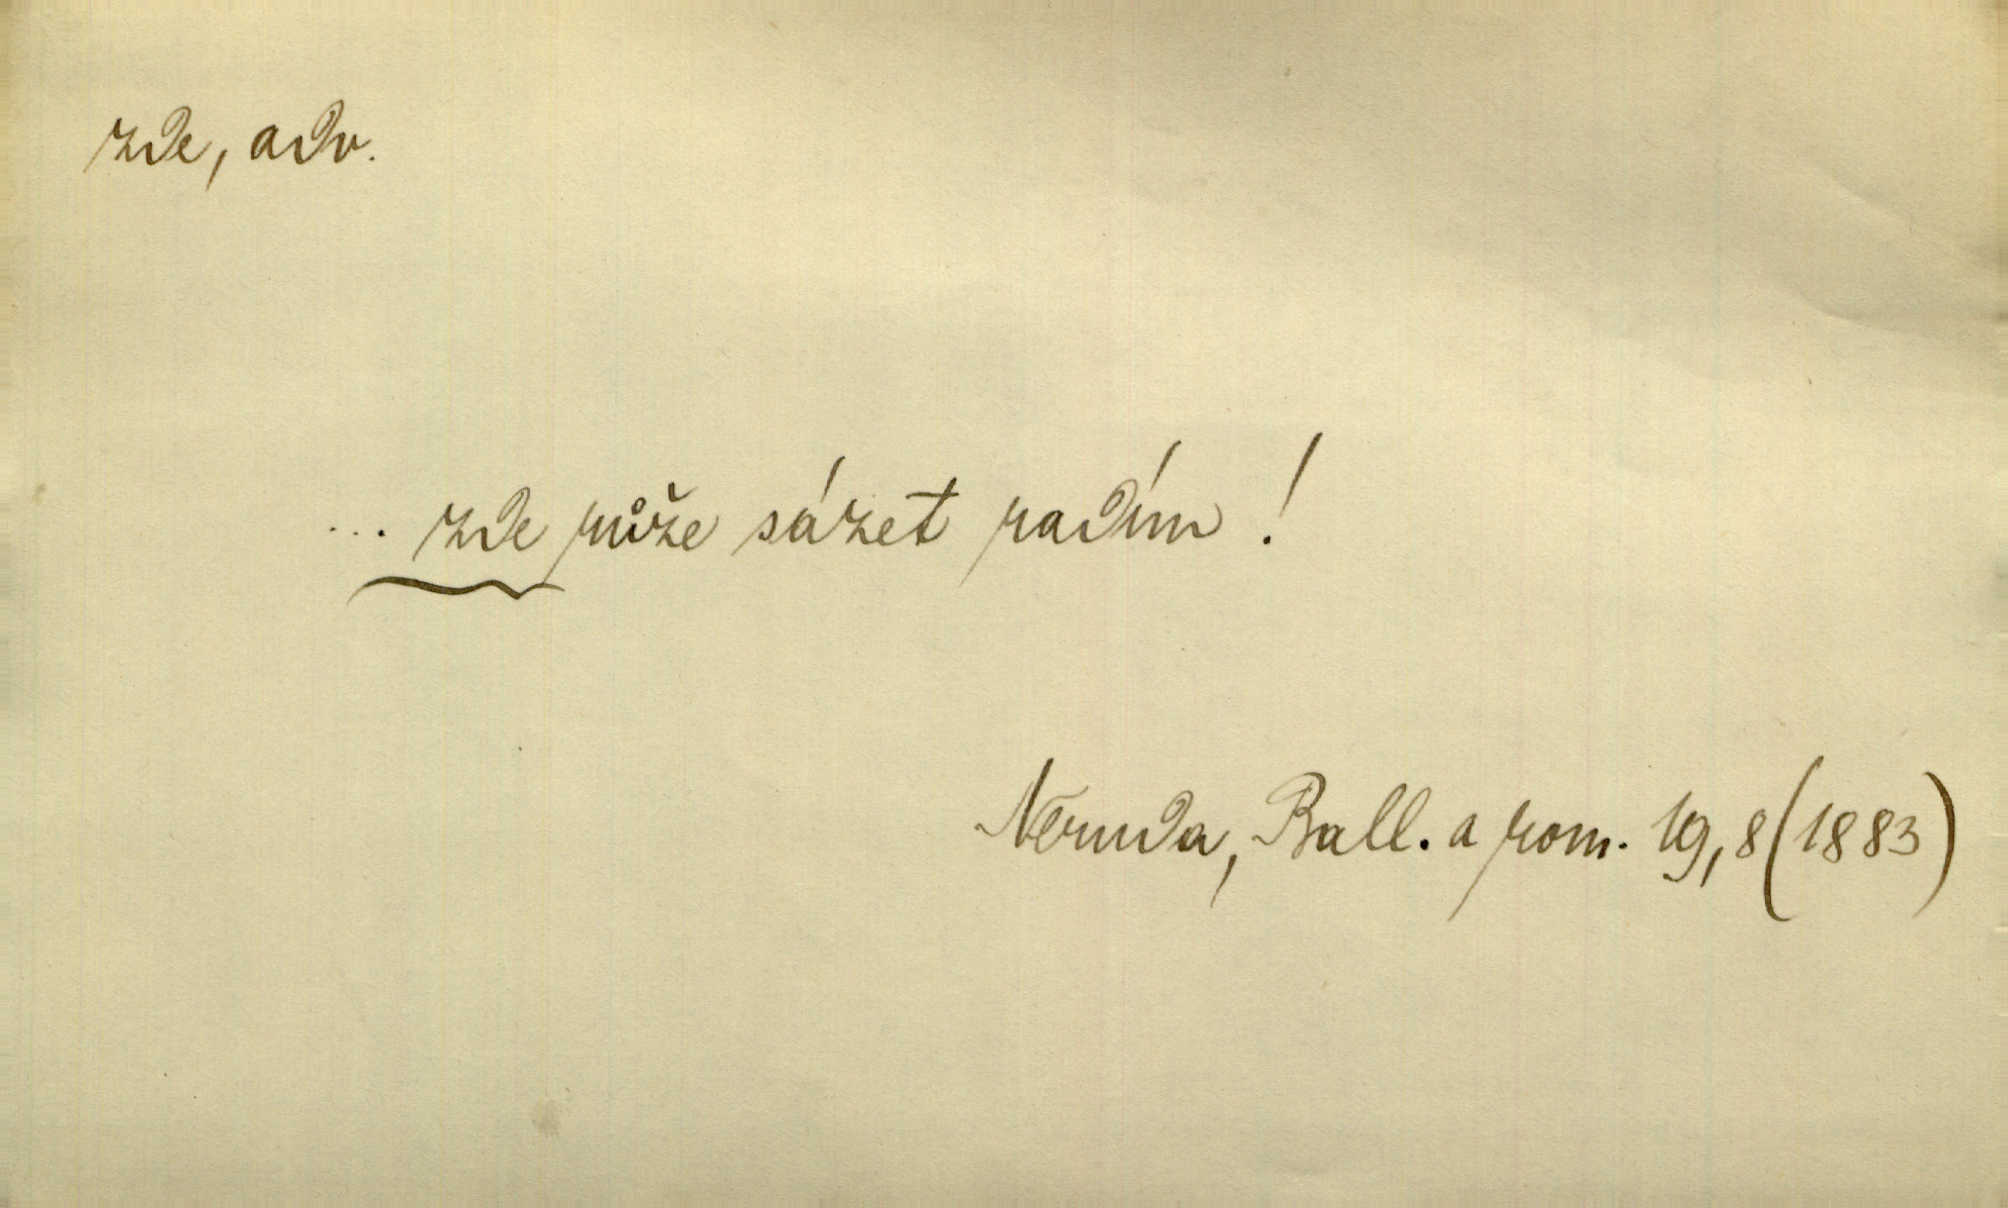 zde, adv.
... zde růže sázet radím!
Neruda, Ball. a rom. 19,8 (1883)